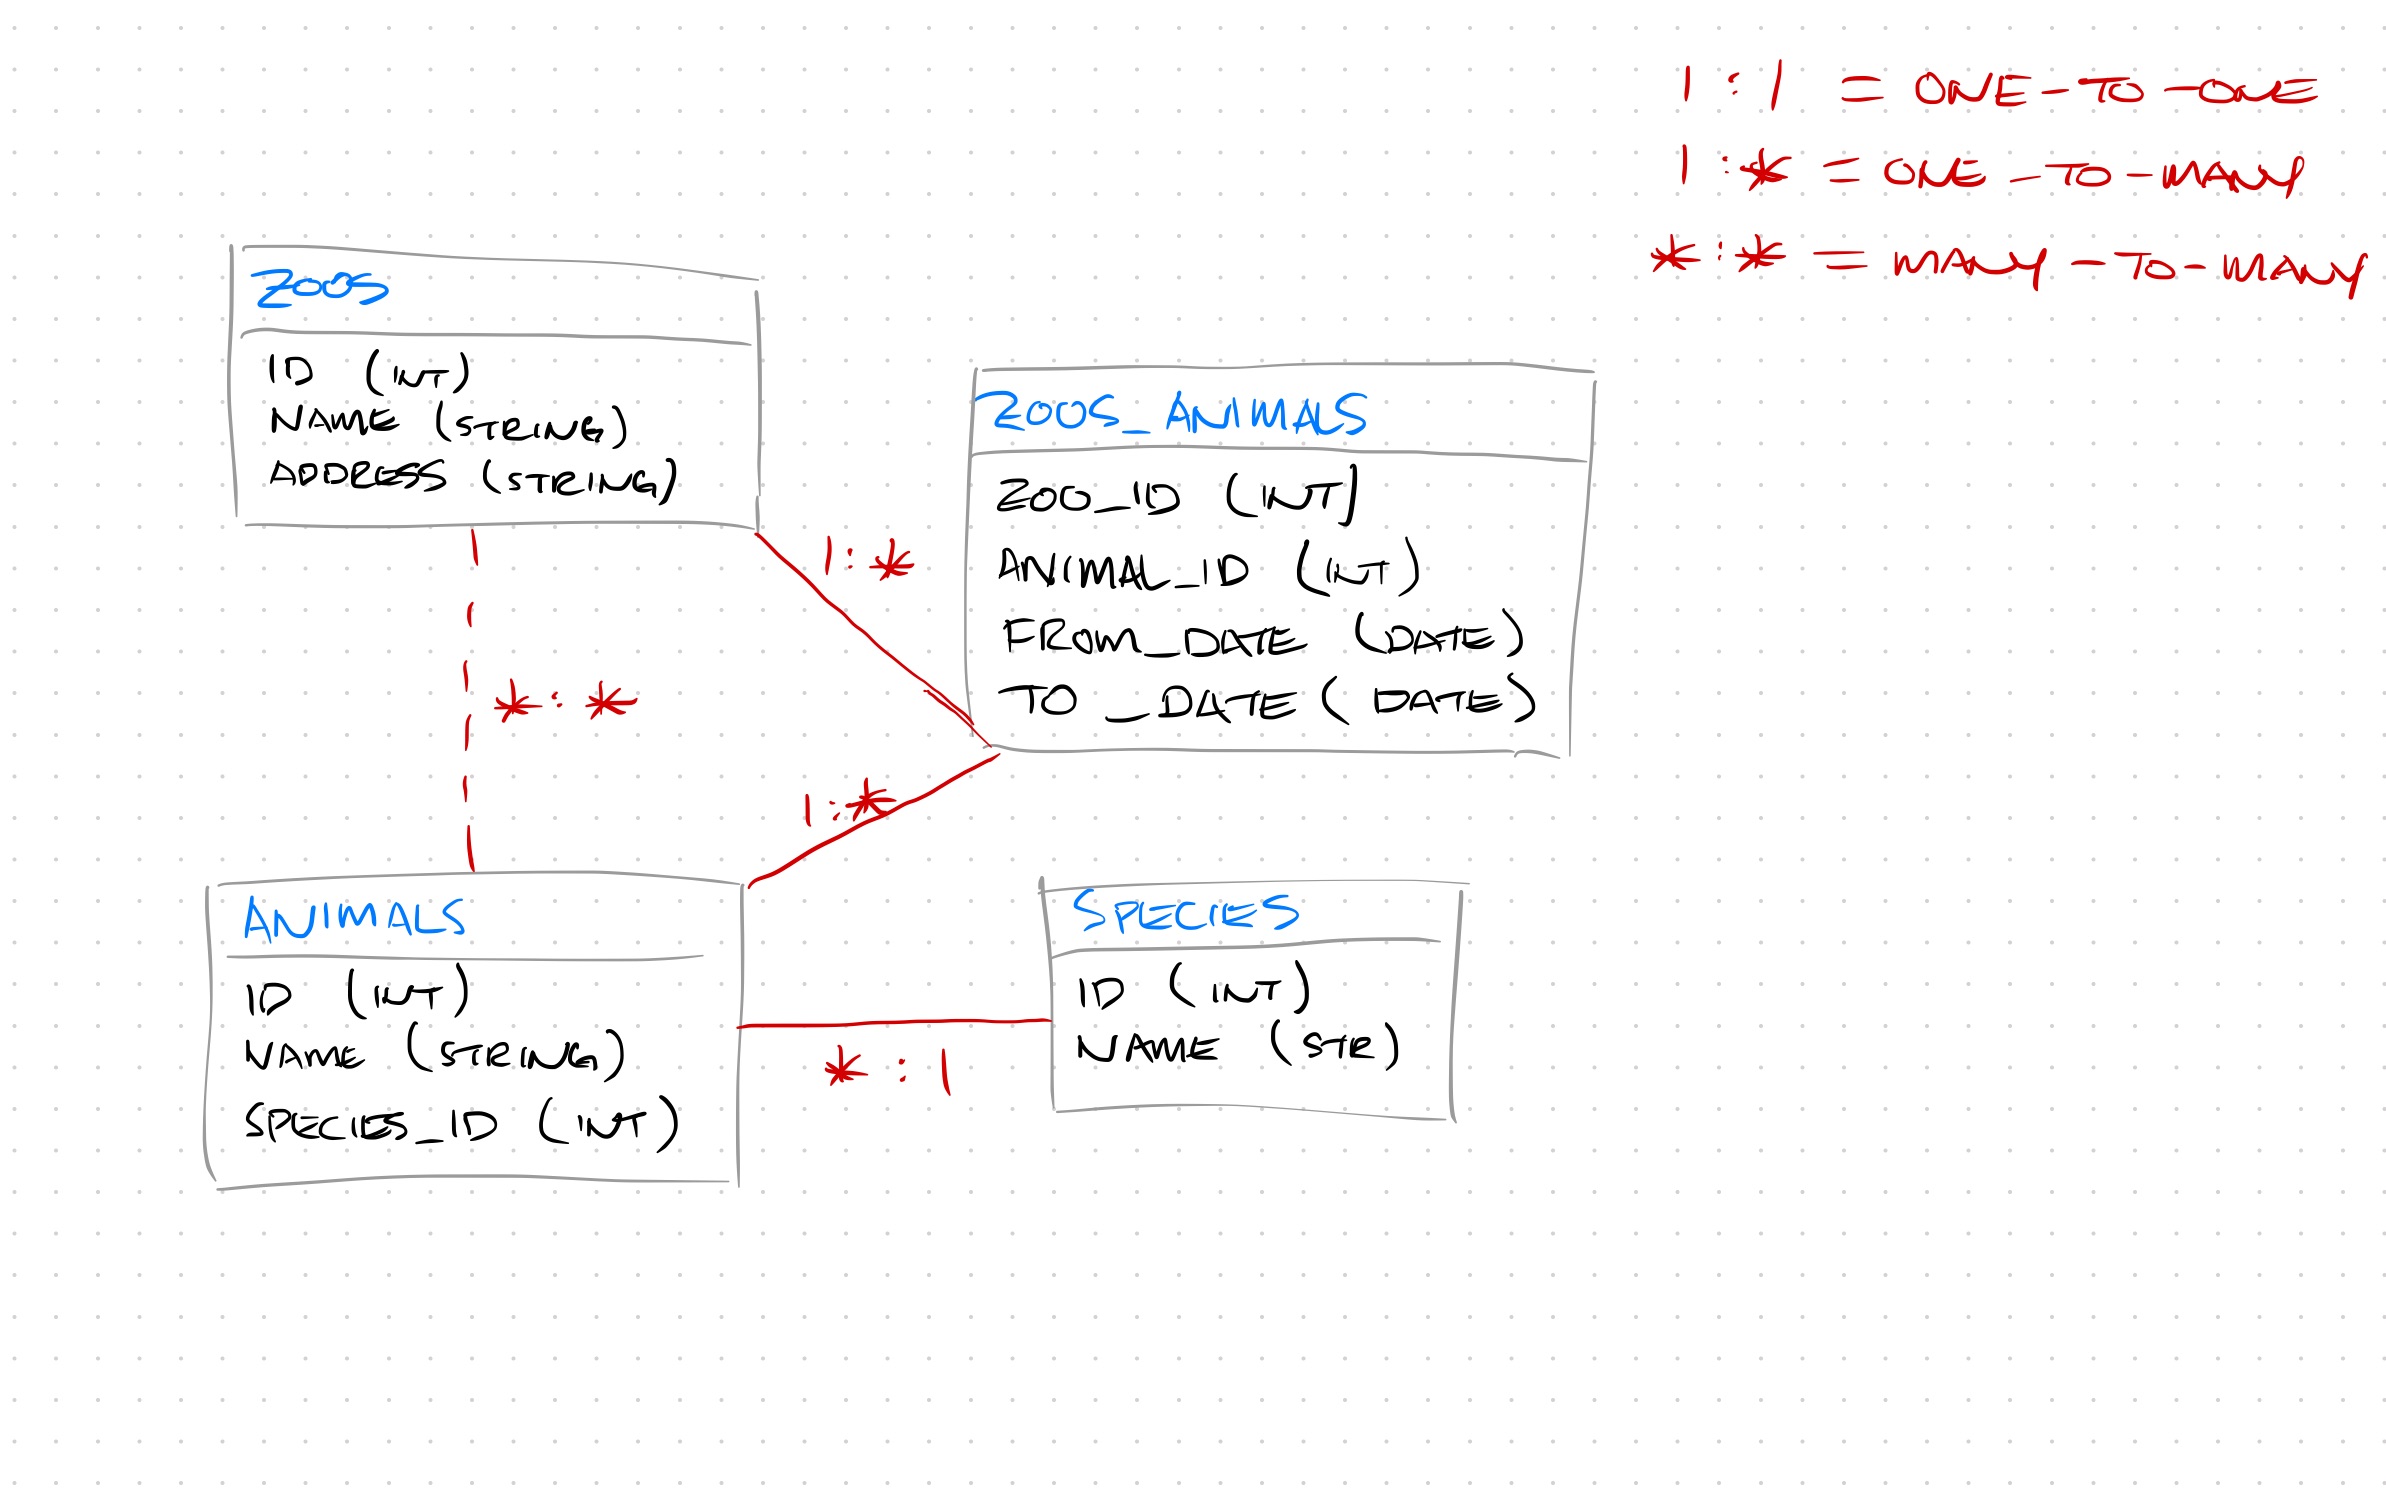 1 : 1 = ONE-TO-ONE
1 : * = ONE-TO-MANY
* : * = MANY-TO-MANY
ZOOS
ID (INT)
NAME (STRING)
ADDRESS (STRING)
ZOOS_ANIMALS
ZOO_ID (INT]
ANIMAL_ID (INT)
FROM_DATE (DATE)
TO_DATE (DATE)
1 : *
* : *
1 : *
ANIMALS
ID (INT)
NAME (STRING)
SPECIES_ID (INT)
* : 1
SPECIES
ID (INT)
NAME (STR)